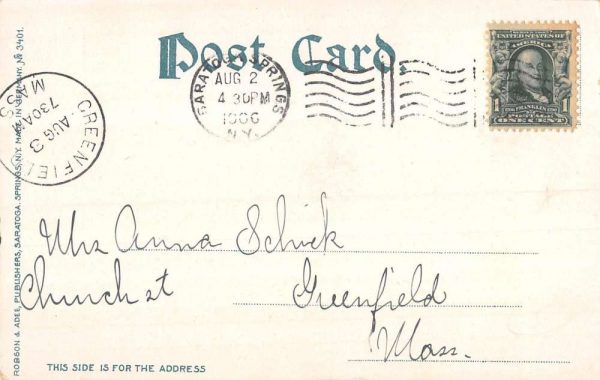 Post Card.
SARATOGA SPRINGS
AUG 2
4 30PM
1906
N.Y.
GREENFIELD
AUG 3
730A
MASS
SERIES 1902
UNITED STATES OF AMERICA
1
FRANKLIN
1
POSTAGE
ONE CENT
Mrs Anna Schick
Church st
Greenfield
Mass.
THIS SIDE IS FOR THE ADDRESS
ROBSON & ADEE, PUBLISHERS, SARATOGA SPRINGS, N.Y. MADE IN GERMANY. № 3401.